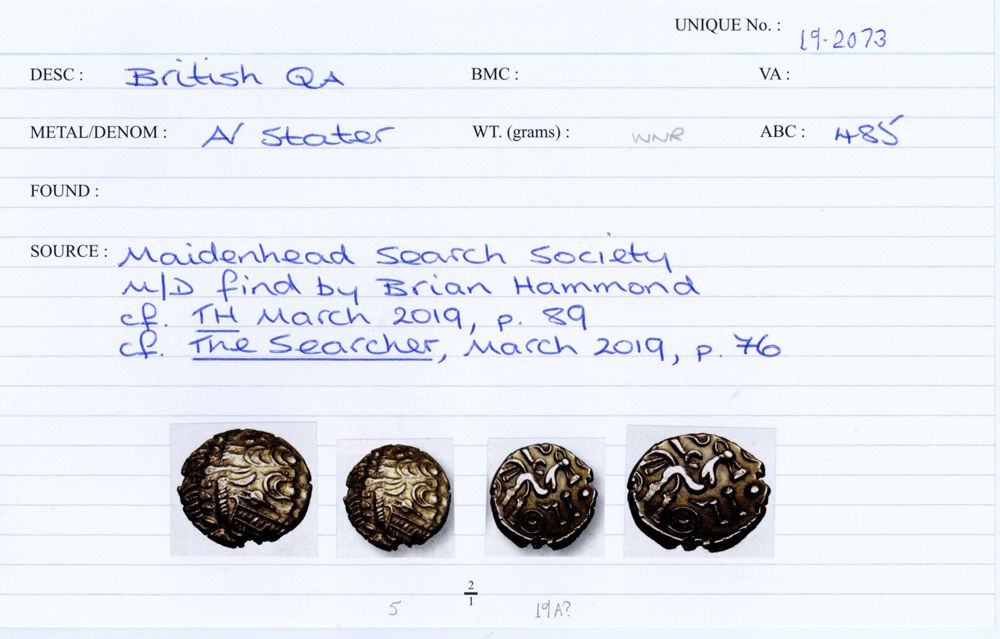 UNIQUE No. : 19-2073
DESC : British QA BMC : VA :
METAL/DENOM : A/ Stater WT. (grams) : WNR ABC : 485
FOUND :
SOURCE : Maidenhead Search Society
M/D find by Brian Hammond
cf. TH March 2019, p. 89
cf. The Searcher, March 2019, p. 76
2
1
5 19A?